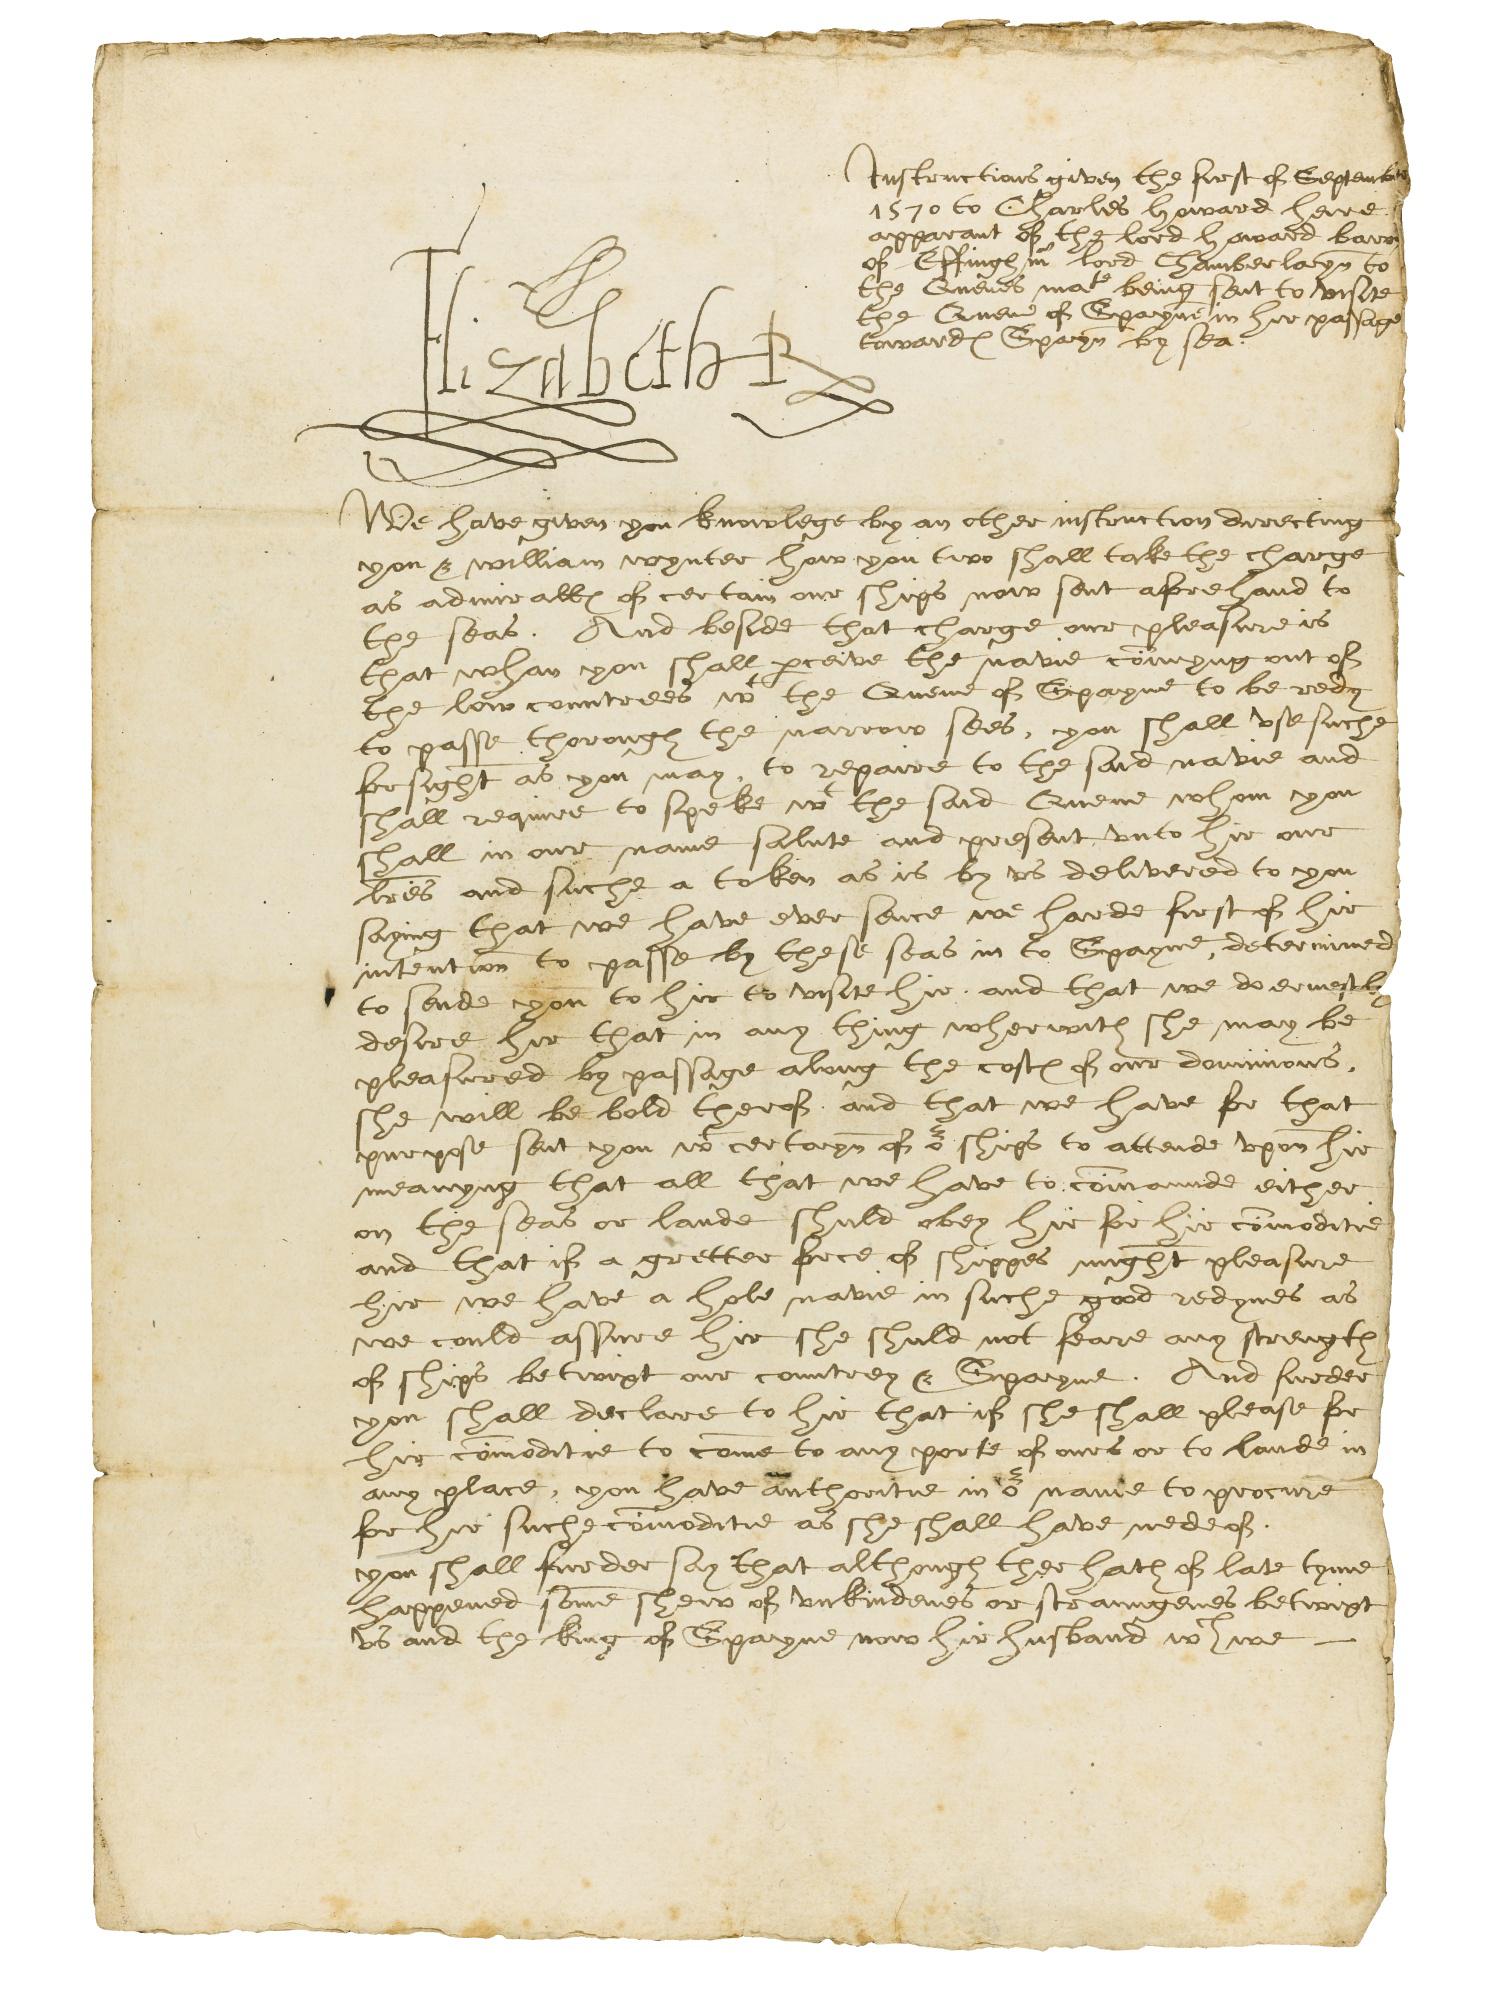 Instructions given the first of Septembre
1570 to Charles howard heire
apparant of the lord howard baron
of Effinghm̄ lord Chamberlayn to
the Quenes mate being sent to visite
the Quene of Spayne in hir passage
towardes Spayn by sea.
Elizabeth R
We have given you knowlege by an other instruction directing
you & william wynter how you two shall take the charge
as admiralles of certain our ships now sent aforehand to
the seas. And beside that charge our pleasure is
that whan you shall perceive the navie com̄yng out of
the low countrees wt the Quene of Spayne to be redy
to passe thorough the narrow sees, you shall vse suche
forsight as you may, to repaire to the said navie and
shall require to speke wt the said Quene whom you
shall in our name salute and present vnto hir our
lr̄es and suche a token as is by vs delivered to you
saying that we have ever sence we harde first of hir
intention to passe by these seas in to Spayne, determined
to sende you to hir to visite hir. and that we do ernestly
desire hir that in any thing wherwith she may be
pleasured by passage along the costes of our dominions,
she will be bold therof. and that we have for that
purpose sent you wt certayn of or ships to attende vpon hir
meanyng that all that we have to com̄aunde either
on the seas or lande shuld obey hir for hir com̄oditie
and that if a gretter force of shippes might pleasure
hir we have a hole navie in suche good redynes as
we could assure hir she shuld not feare any strength
of ships betwixt our countrey & Spayne. And furder
you shall declare to hir that if she shall please for
hir com̄oditie to come to any porte of ours or to lande in
any place, you have authoritie in or name to procure
for hir suche com̄oditie as she shall have nede of.
you shall furder say that although ther hath of late tyme
happened some shew of vnkindenes or straungenes betwixt
vs and the king of Spayne now hir husband wch we —